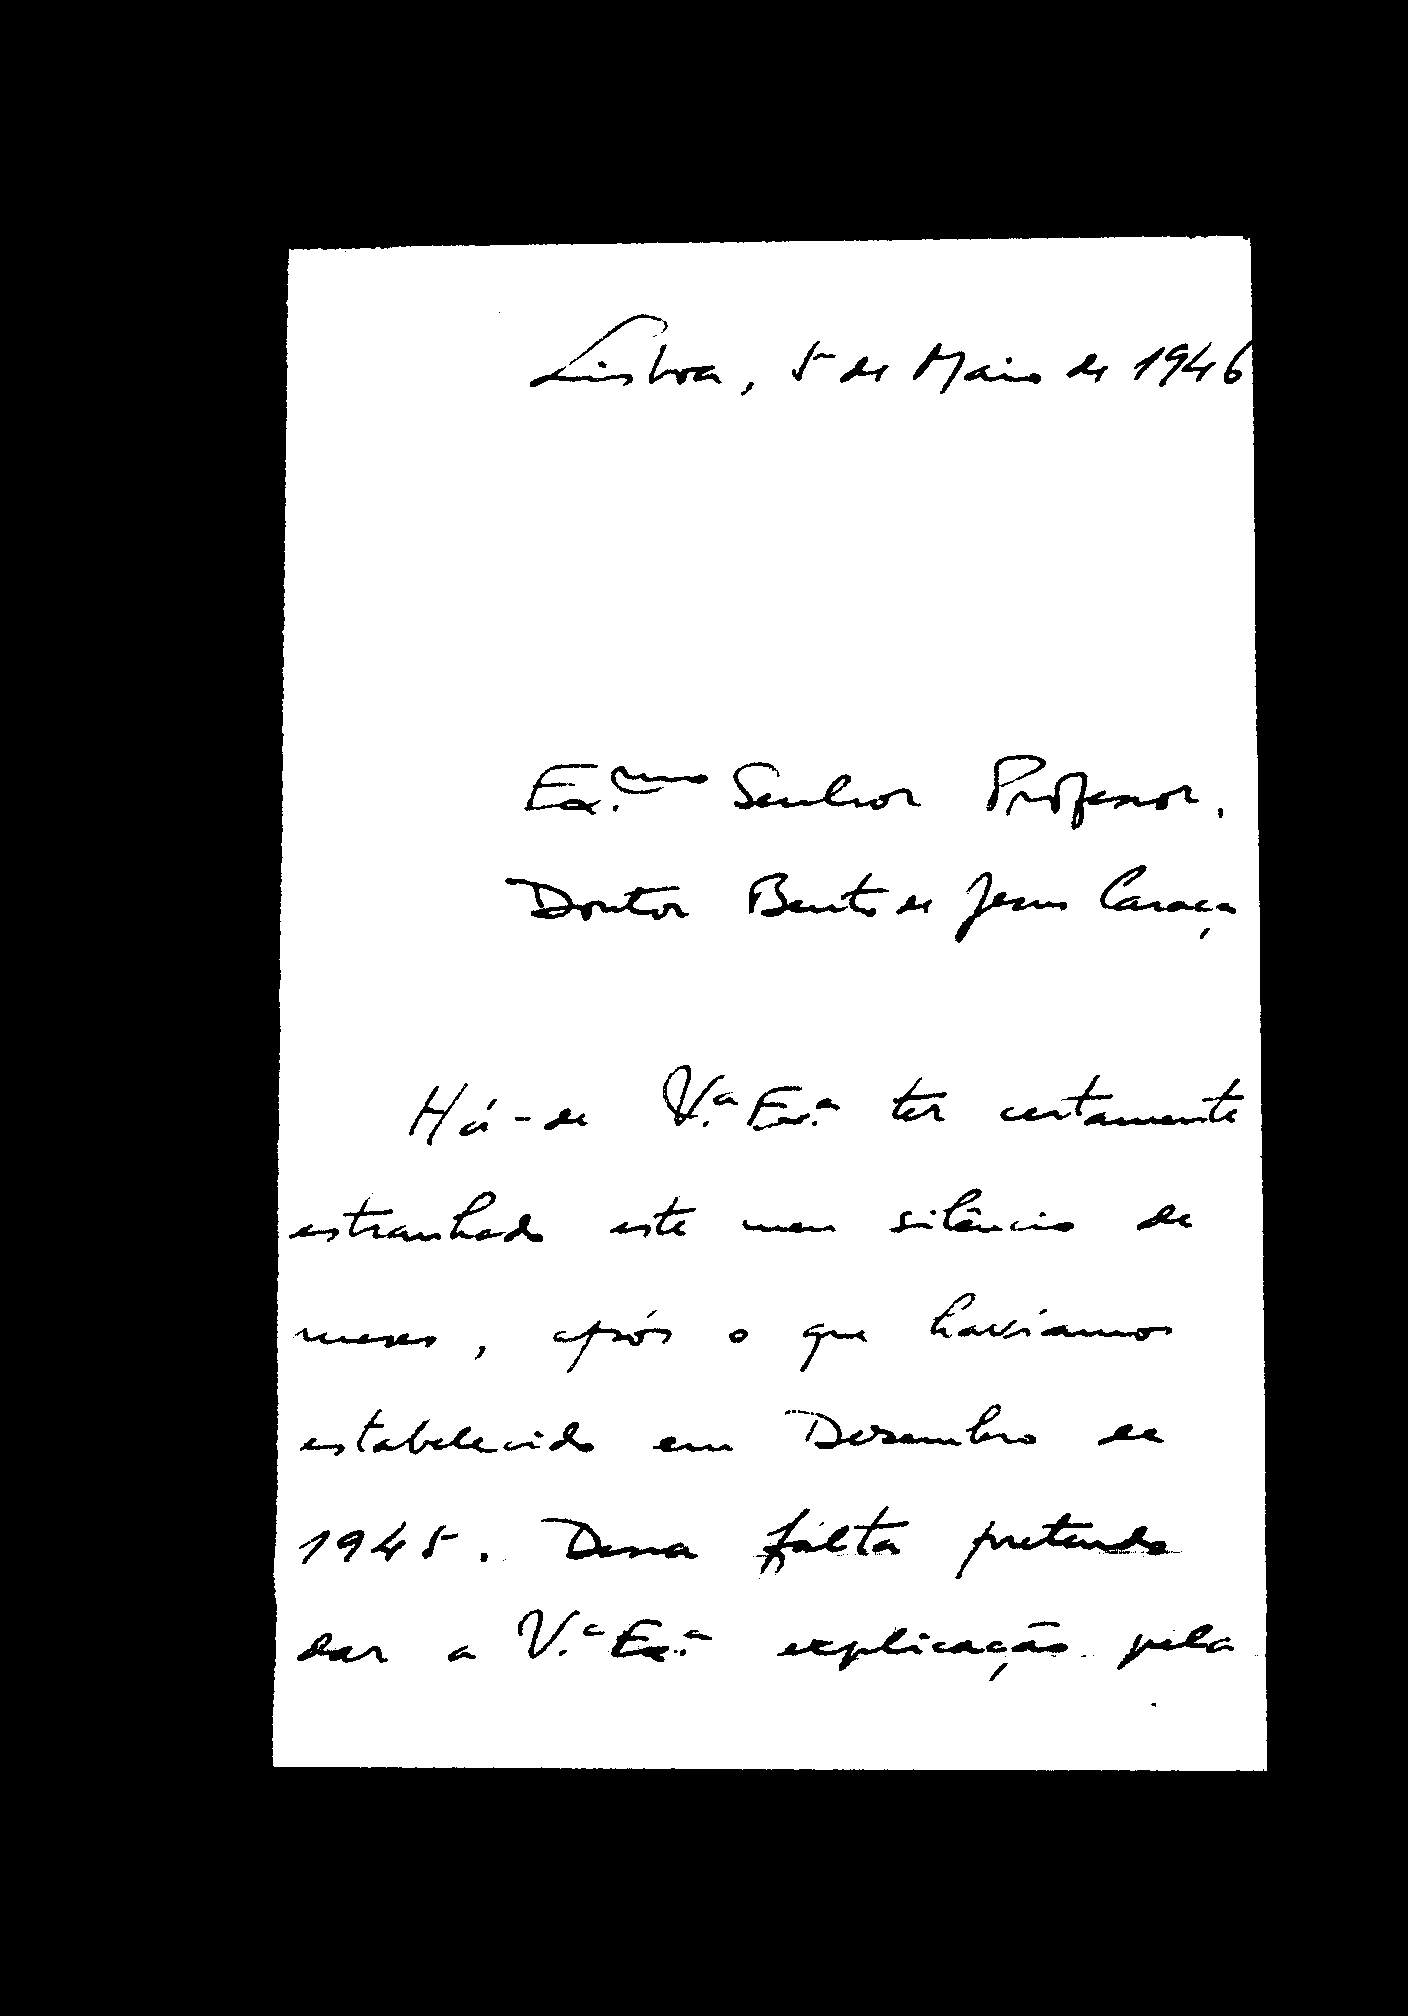 Lisboa, 5 de Maio de 1946
Ex.mo Senhor Professor.
Doutor Bento de Jesus Caraça
Há-de V.ª Ex.ª ter certamente
estranhado este meu silêncio de
meses, após o que havíamos
estabelecido em Dezembro de
1945. Dessa falta pretendo
dar a V.ª Ex.ª explicação pela